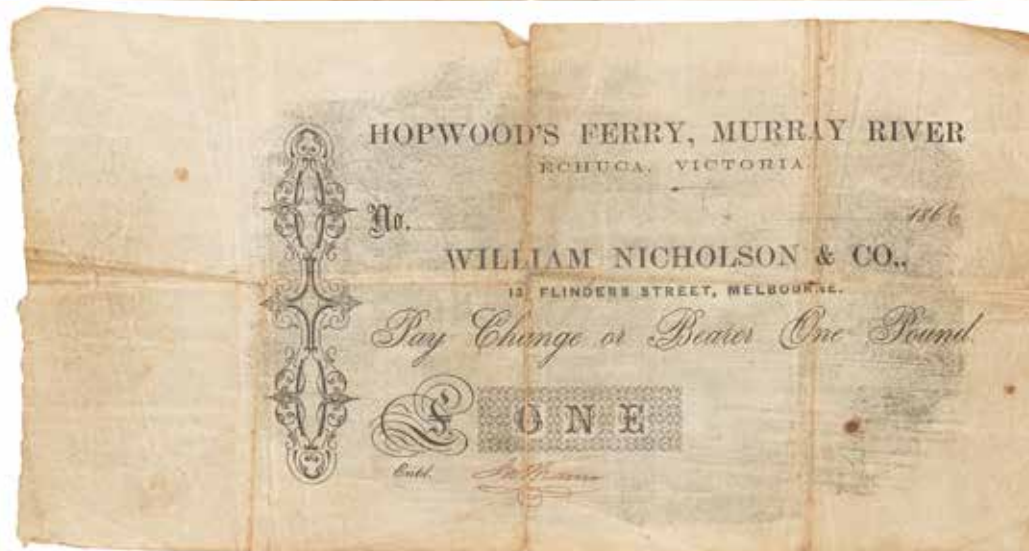 HOPWOOD'S FERRY, MURRAY RIVER
ECHUCA, VICTORIA
No. 186
WILLIAM NICHOLSON & CO.,
13 FLINDERS STREET, MELBOURNE.
Pay Change or Bearer One Pound.
£ ONE
Entd.